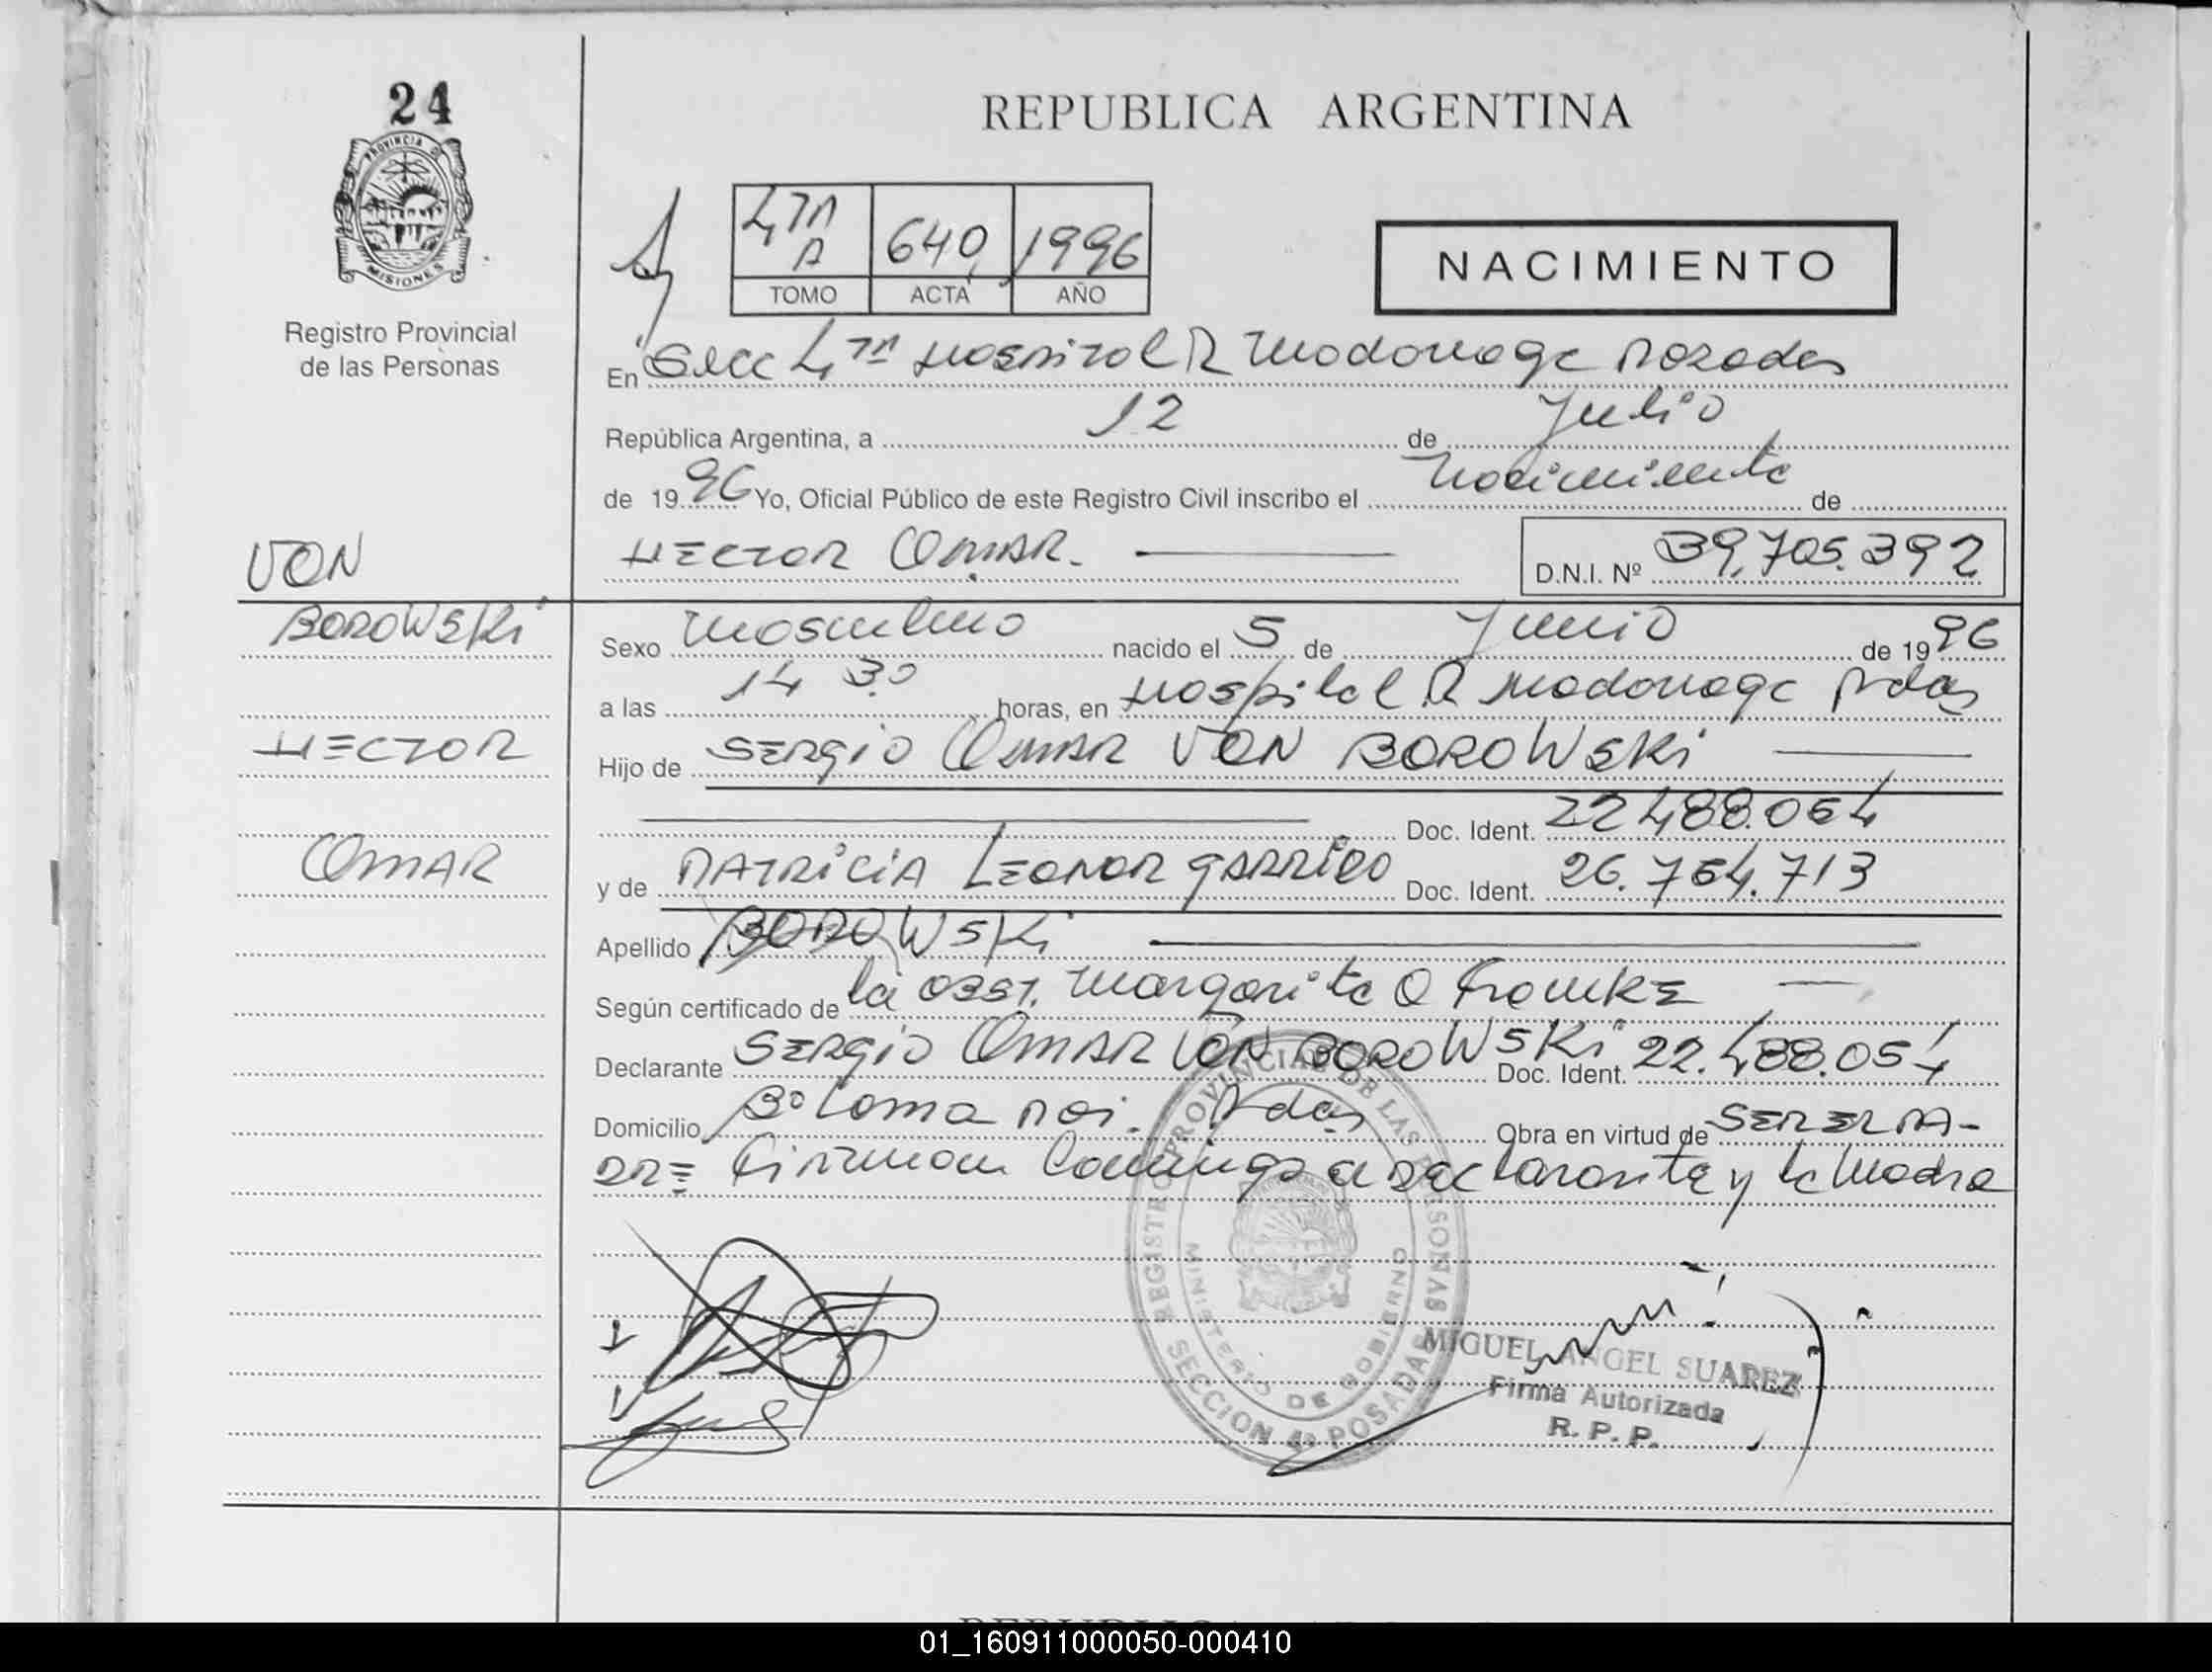 24
REPUBLICA ARGENTINA
PROVINCIA DE
MISIONES
Registro Provincial
de las Personas
4ta A 640 1996
TOMO ACTA AÑO
NACIMIENTO
En Secc 4ta Hospital R Madariaga Posadas
República Argentina, a 12 de Julio
de 1996 Yo, Oficial Público de este Registro Civil inscribo el Nacimiento de
HECTOR OMAR. D.N.I. Nº 39.705.392
VON
BOROWSKi
HECTOR
OMAR
Sexo Masculino nacido el 5 de Junio de 1996
a las 14 30 horas, en Hospital R Madariaga Pdas
Hijo de SERGiO OMAR VON BOROWSKi
Doc. Ident. 22.488.054
y de PATRiCiA LEONOR GARRiDO Doc. Ident. 26.764.713
Apellido BOROWSKi
Según certificado de la OBST. Margarita O Fromke
Declarante SERGiO OMAR VON BOROWSKi Doc. Ident. 22.488.054
Domicilio Bº Loma Poi. Pdas Obra en virtud de SER EL PA-
DRE Firman Conmigo el Declarante y la Madre
REGISTRO PROVINCIAL DE LAS PERSONAS
MINISTERIO DE GOBIERNO
SECCION 4ª POSADAS
MIGUEL ANGEL SUAREZ
Firma Autorizada
R. P. P.
01_160911000050-000410